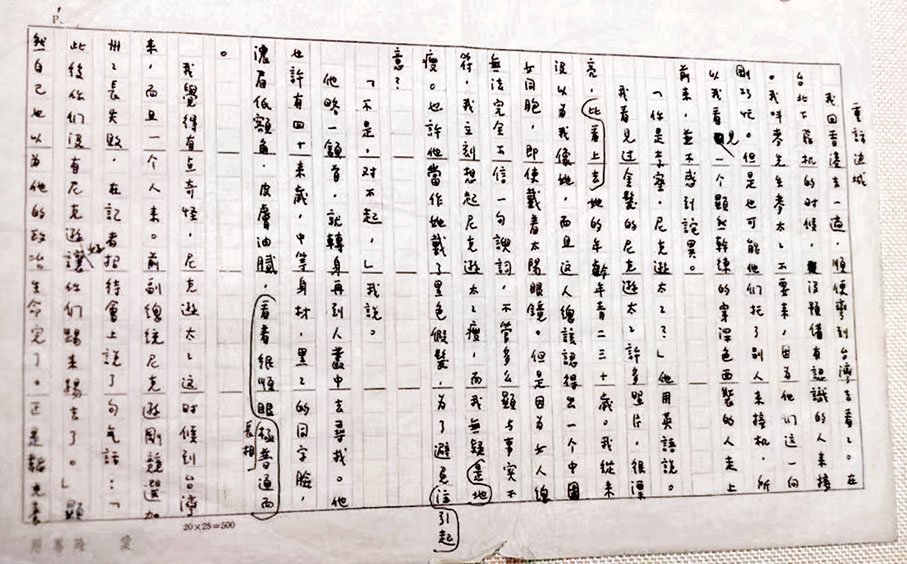 重訪边城
我回香港去一趟，順便弯到台灣去看々。在
台北下飛机的时候，沒預備有認識的人來接
。我叫麥先生麥太々不要來，因為他们这一向
剛巧忙。但是也可能他们托了別人來接机，所
以我看見一个顯然幹練的穿深色西裝的人走上
前來，並不感到詫異。
「你是李察·尼克遜太々？」他用英語說。
我看見过金髮的尼克遜太々許多照片，很漂
亮，比看上去她的年齡年青二三十歲。我從來
沒以為我像她，而且这人總該認得出一个中國
女同胞，即使戴着太陽眼鏡。但是因為女人總
無法完全不信一句諛詞，不管多么顯与事实不
符，我立刻想起尼克遜太々瘦，而我無疑是地
瘦。也許他當作她戴了黑色假髮，為了避免引起注
意？
「不是，对不起，」我說。
他略一頷首，就轉身再到人叢中去尋找。他
也許有四十來歲，中等身材，黑々的同字臉，
濃眉低額角，皮膚油膩，看着很順眼極普通而長相
。
我覺得有点奇怪，尼克遜太々这时候到台灣
來，而且一个人來。前副總統尼克遜剛競選加
州々長失敗，在記者招待會上說了句气話：「
此後你们沒有尼克遜好讓你们踢來踢去了。」顯
然自己也以為他的政治生命完了。正是韜光養
20×25=500